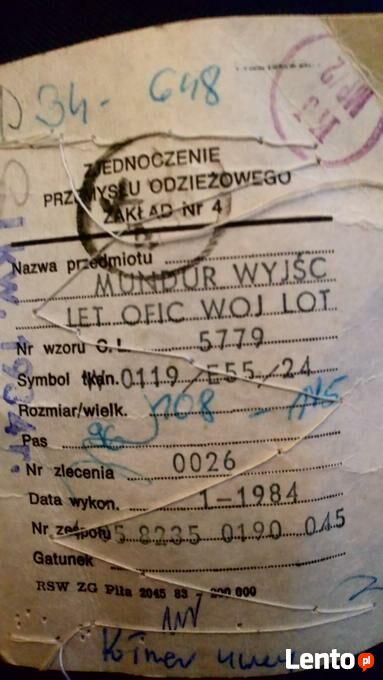 34- 648
ZJEDNOCZENIE
PRZEMYSŁU ODZIEŻOWEGO
ZAKŁAD Nr 4
Nazwa przedmiotu
MUNDUR WYJŚC
LET OFIC WOJ LOT
Nr wzoru C.L. 5779
Symbol tkan. 0119/E55/24
Rozmiar/wielk. 108 -
Pas 96
Nr zlecenia 0026
Data wykon. 1-1984
Nr zespołu 5 8235 0190 045
Gatunek
RSW ZG Piła 2045 83 7 200.000
I kw. 1984r.
Lento.pl